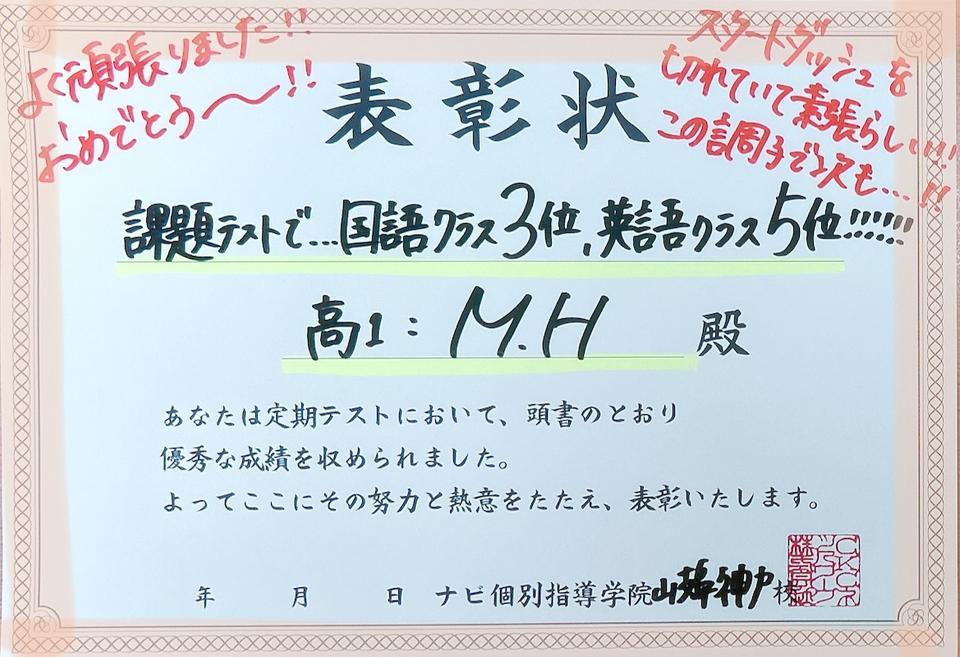 よく頑張りました!!
おめでとう〜!!
スタートダッシュを
切れていて素張らしい!!
この調子で次も…!!
表彰状
課題テストで…国語クラス3位、英語クラス5位!!!!!!
高1：M.H 殿
あなたは定期テストにおいて、頭書のとおり
優秀な成績を収められました。
よってここにその努力と熱意をたたえ、表彰いたします。
年 月 日 ナビ個別指導学院山端神戸校